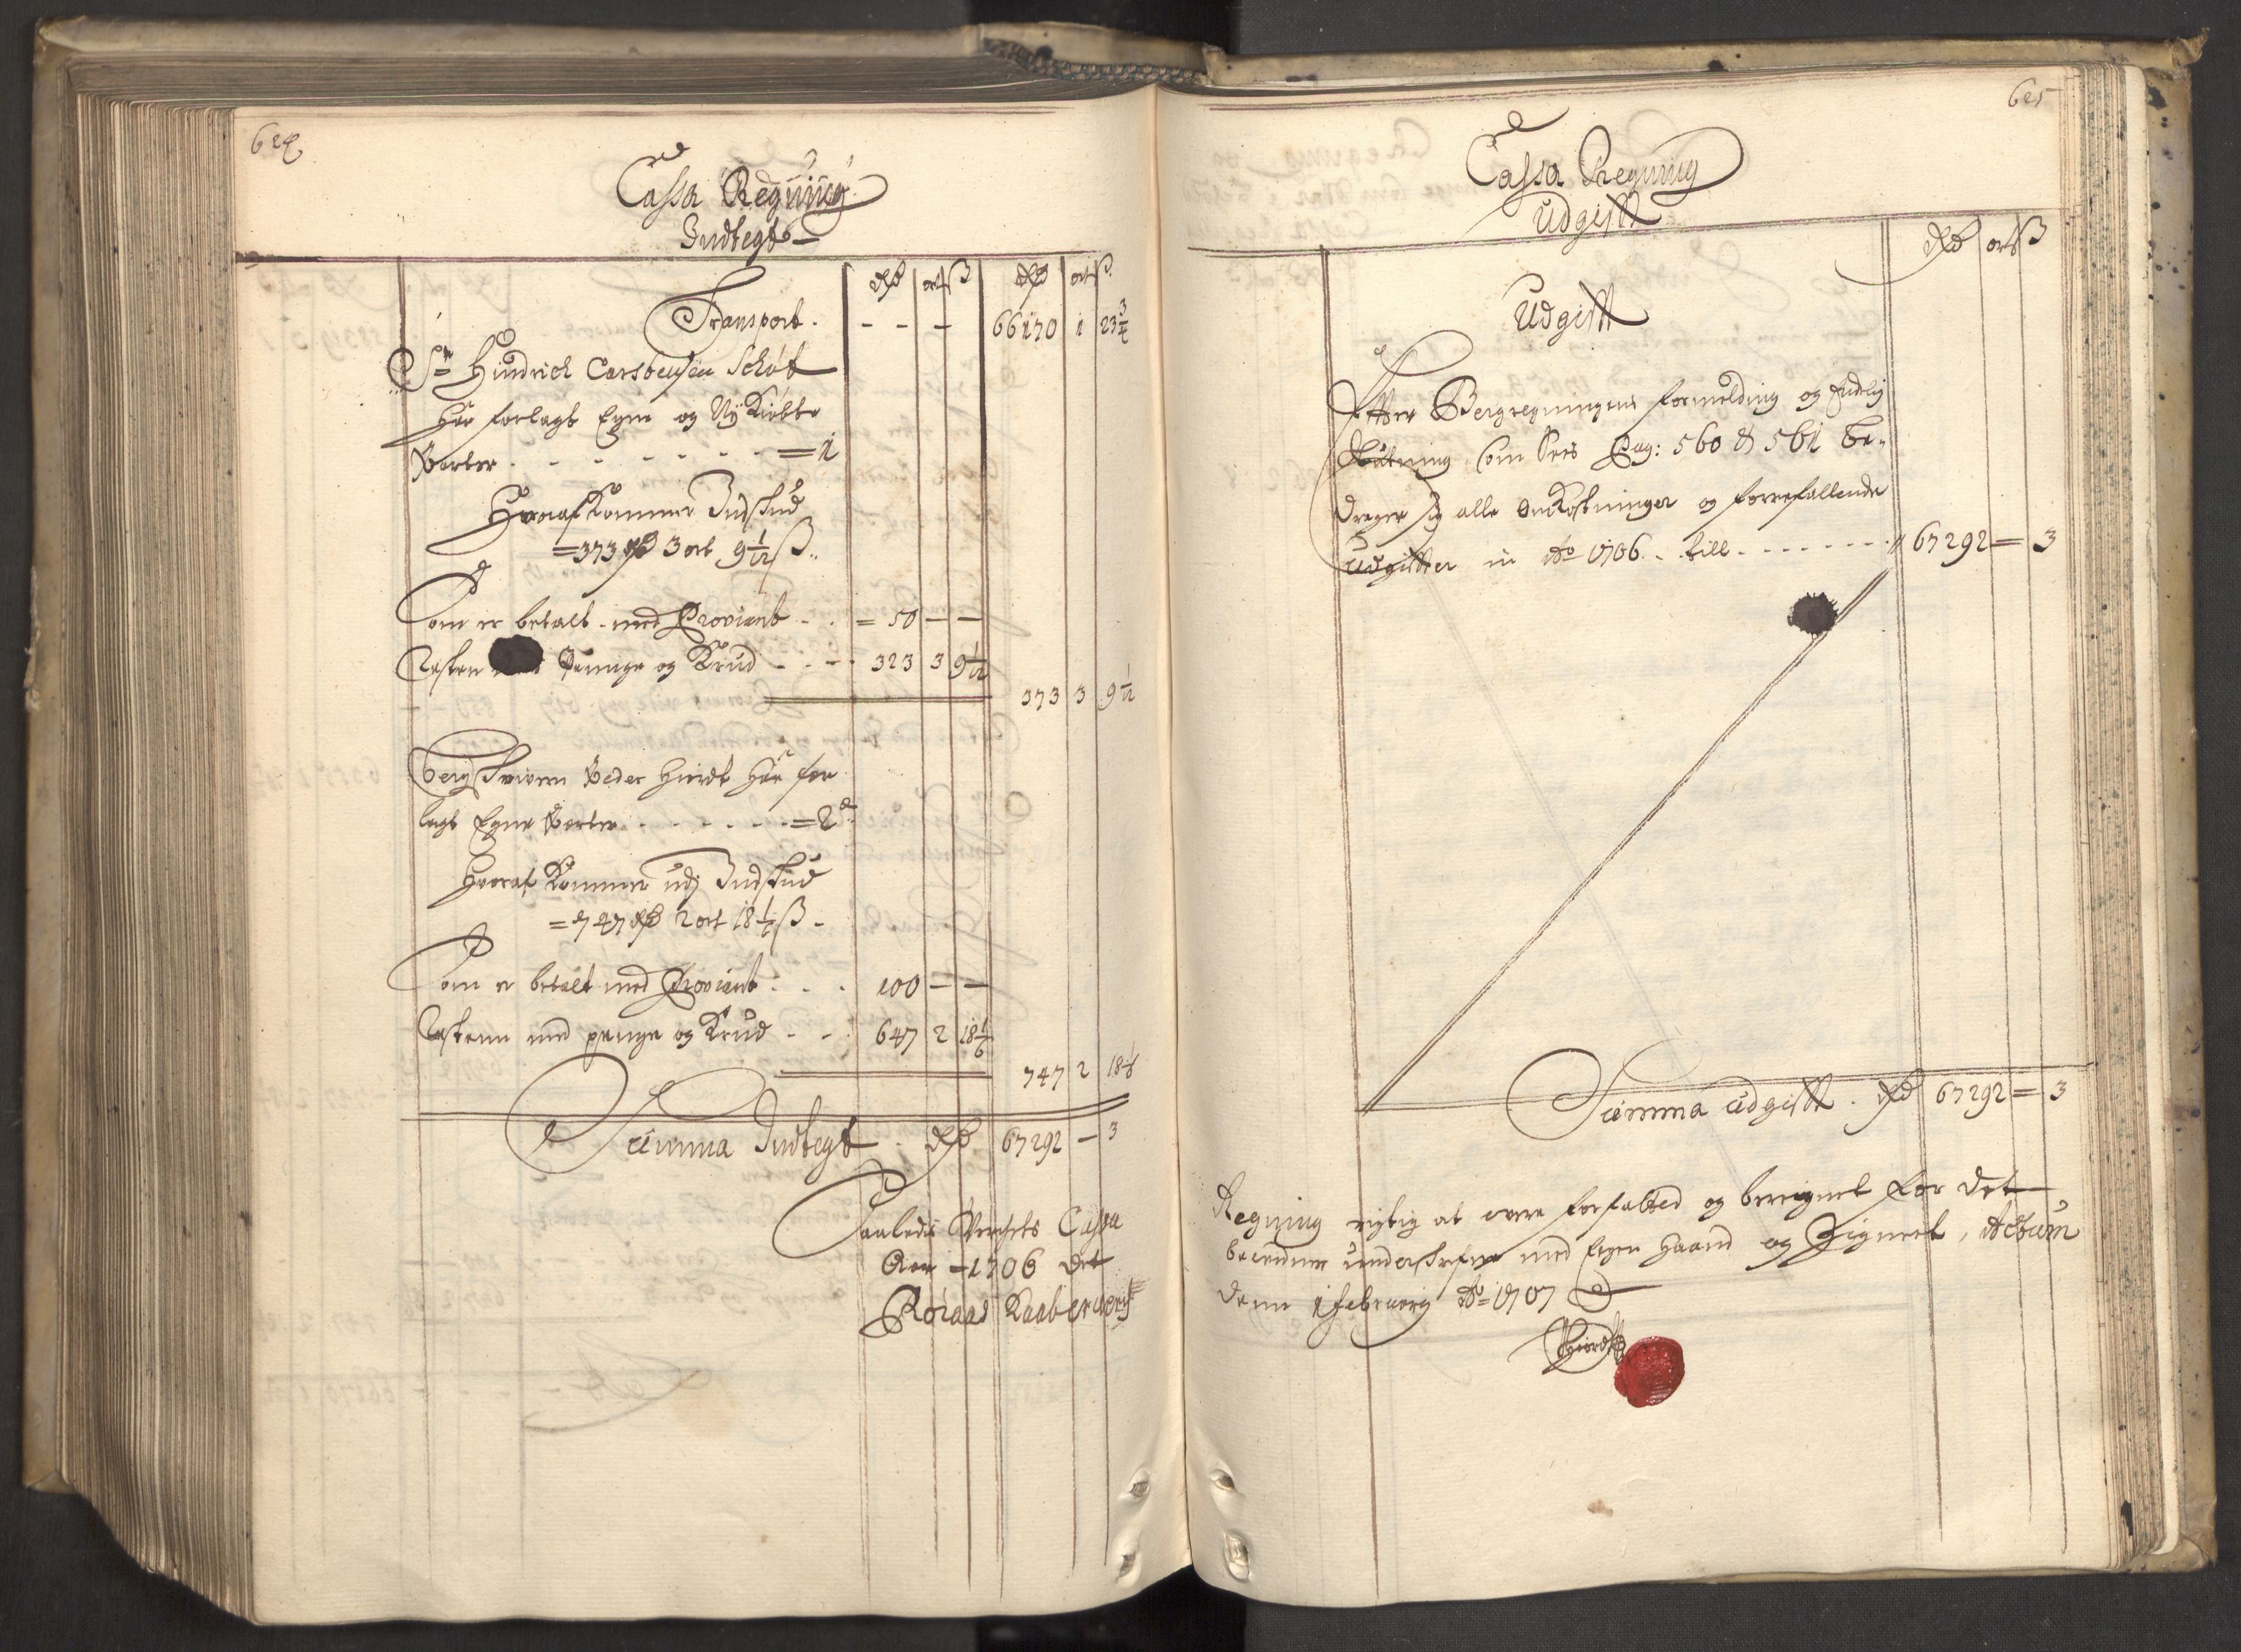 624
Cassa Regning
Indtegt
Rdr ort ß Rdr ort ß
Transport. - - - 66170 1 23 3/4
Sr Hindrich Carstensen Schøt
Har forlagt Egne og Ny Kiøbte
Parter - - - - - - - = 1
Hvoraf Kommer Indskud
= 373 Rdr 3 ort 9 1/12 ß
Som er betalt med Proviant - - = 50 - -
Resten Penninge og Krud - - - 323 3 9 1/12
373 3 9 1/12
Bergskrivern Peder Hiordt Har for
lagt Egne Parter - - - - - = 2
Hvoraf Kommer udj Indskud
= 747 Rdr 2 ort 18 1/6 ß
Som er betalt med Proviant - - 100 - -
Restenn med penge og Krud - - 647 2 18 1/6
747 2 18 1/6
Summa Indtegt . Rdr 67292 - 3
Saaledis Verchets Cassa
Aar 1706 det
Røraas Kaaberverch
625
Cassa Regning
Udgifft
Rdr ort ß
Udgifft
Effter Bergregningens formelding og Endelig
Slutning, som sees Pag: 560 & 561 be-
drager sig alle Omkostninger og forrefallende
Udgiffter in Ao 1706 - till - - - - - - 67292 = 3
Summa Udgifft . Rdr 67292 = 3
Regning rigtig at være forfatted og beregnet for det
bekiender underskrefne med Egen Haand og Zignet, Actum
denn 1 February Ao 1707
PHiordt